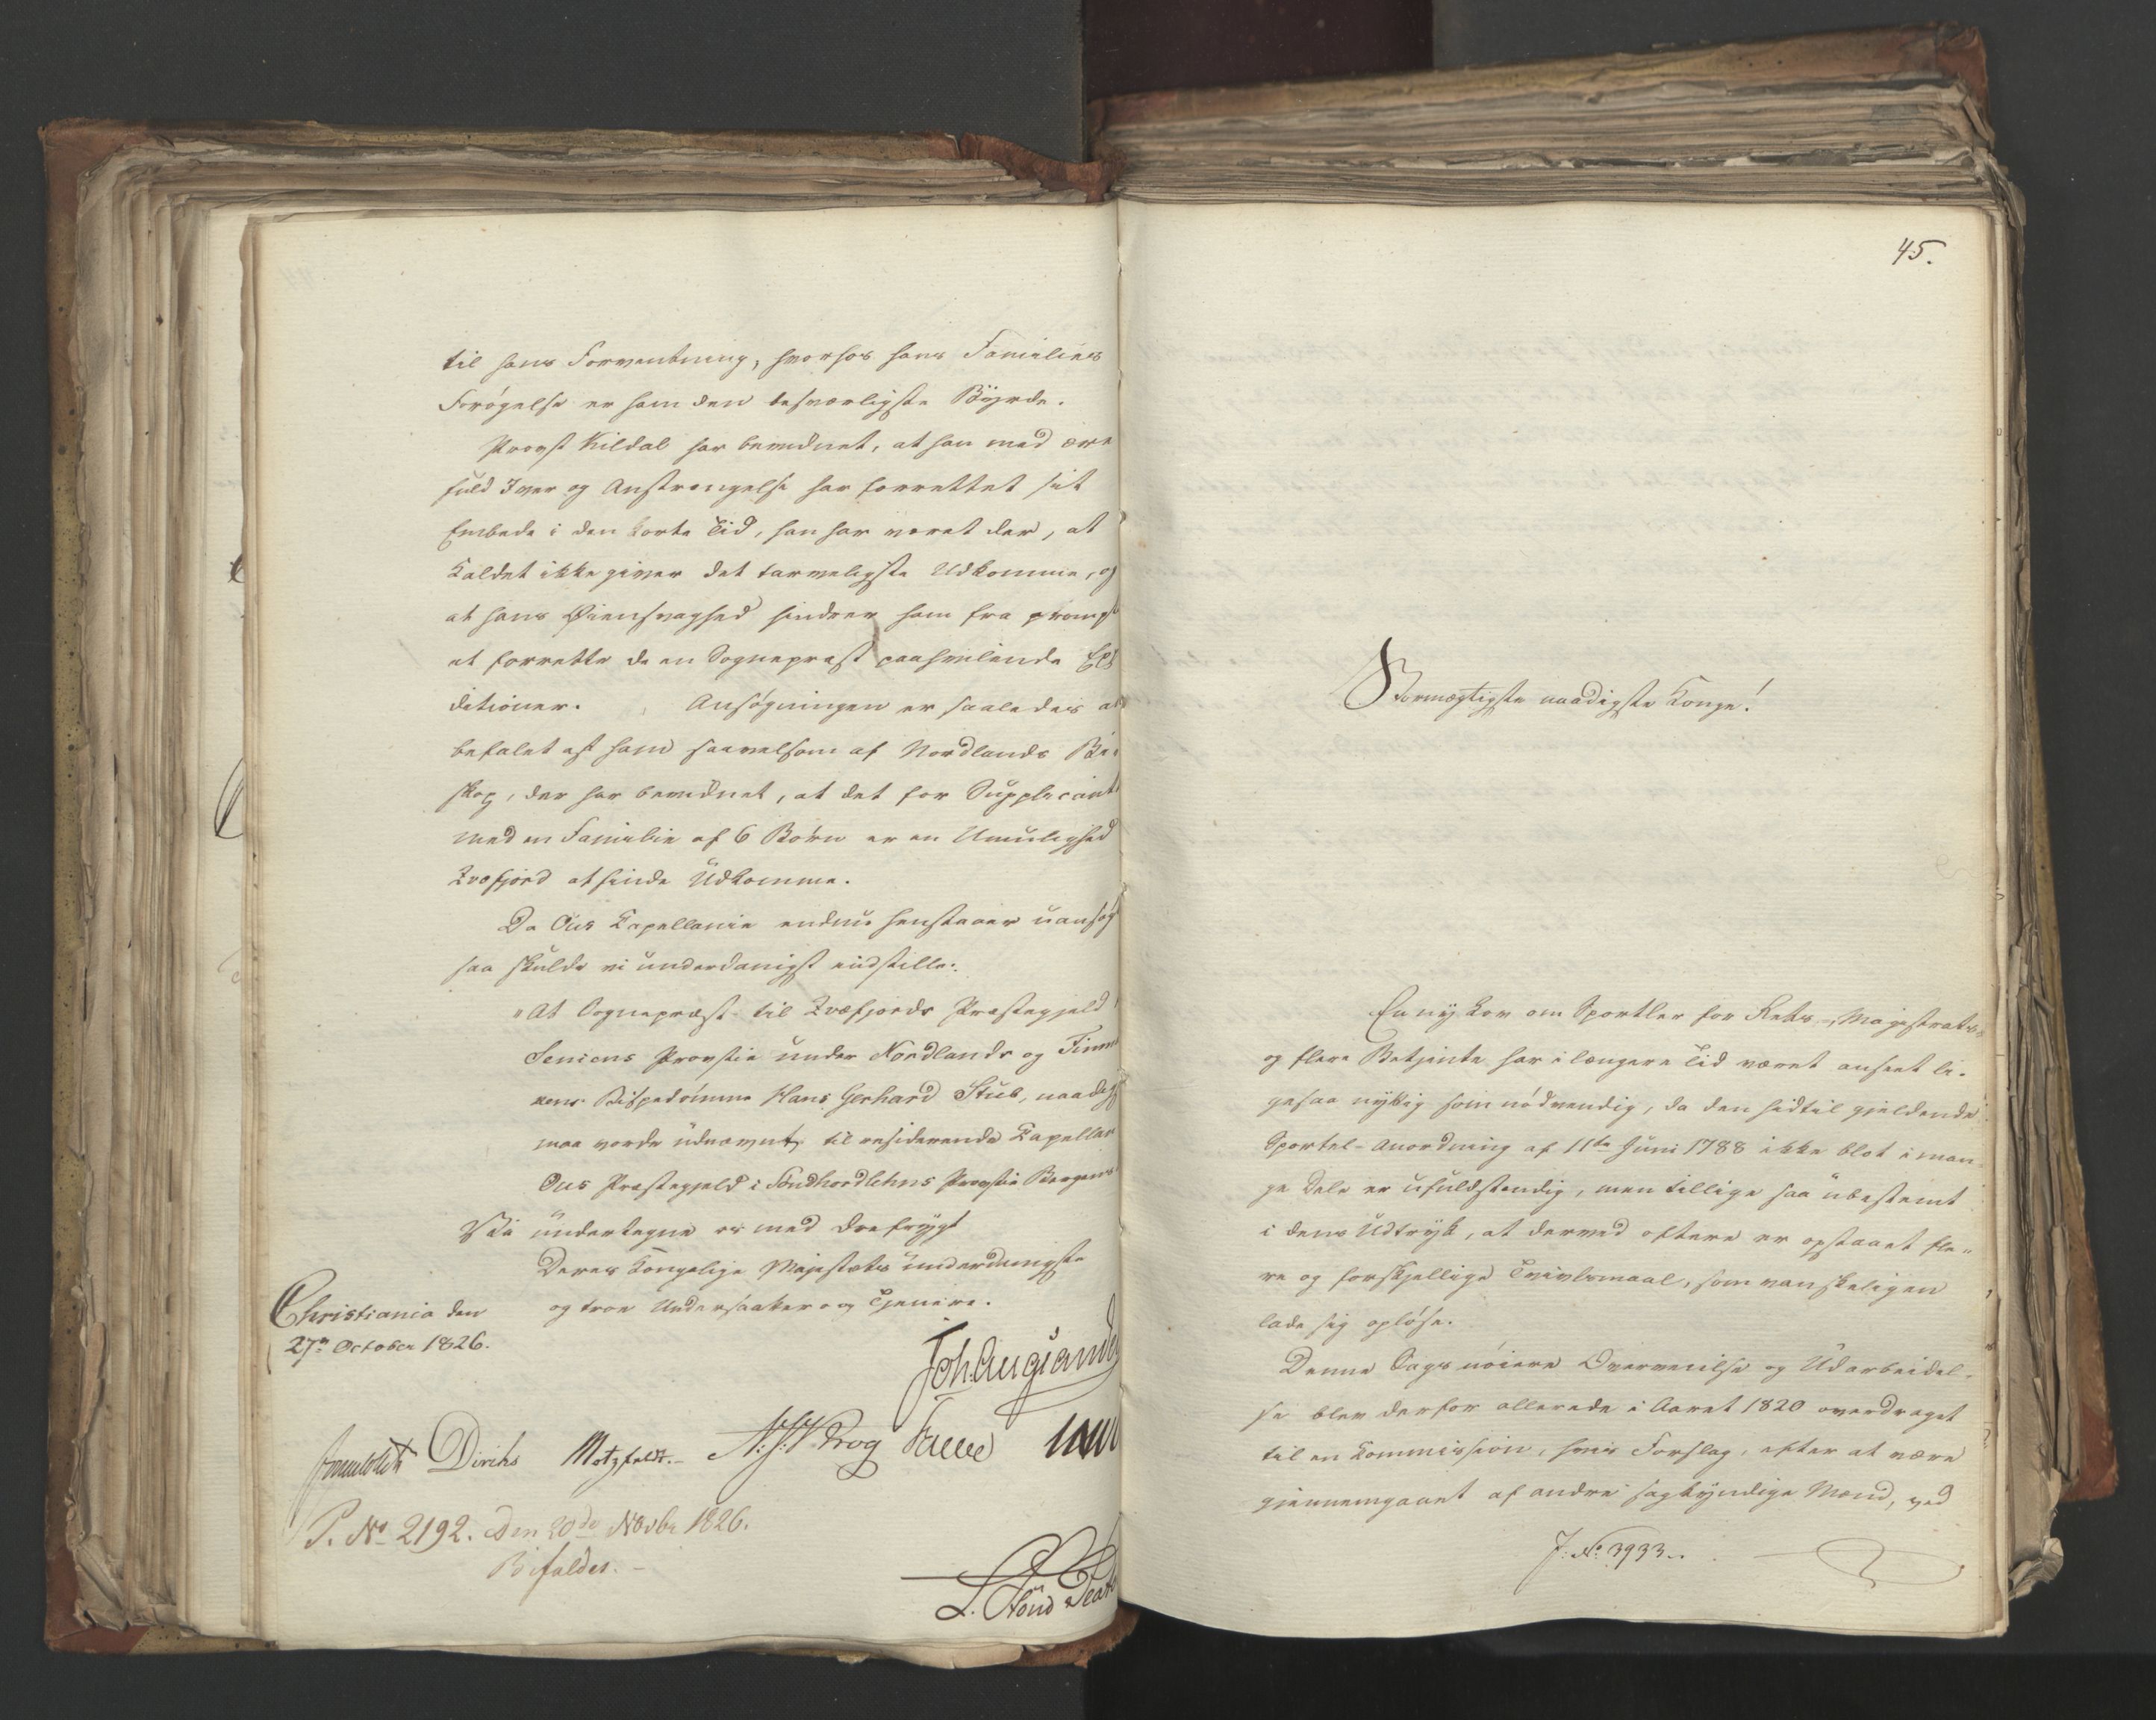 til hans Forventning, hvorhos hans Families
Forøgelse er ham den besværligste Byrde.
Provst Kildal har bevidnet, at han med ære
fuld Iver og Anstrængelse har forrettet sit
Embede i den korte Tid, han har været der, at
Kaldet ikke giver det tarveligste Udkomme, og
at hans Øiensvaghed hindrer ham fra prompt
at forrette de en Sognepræst paahvilende Exp
ditioner. Ansøgningen er saaledes an
befalet af ham saavelsom af Nordlands Bi-
skop, der har bevidnet, at det for Supplicant
med en Familie af 6 Børn er en Umulighed
Qvæfjord at finde Udkomme.
Da Ous Capellanie endnu henstaaer uansøgt
saa skulde vi underdanigst indstille:
"At Sognepræst til Qvæfjords Præstegjeld
Seniens Provstie under Nordlands og Finm
kens Bispedømme Hans Gerhard Stub, naadigst
maa vorde udnævnt til residerende Capellan
Ous Præstegjeld i Søndhordlehns Provstie Bergens
Vi undertegne os med Ærefrygt
Deres Kongelige Majestæts underdanigste
og troe Undersaatter og Tjenere.
Christiania den
27de October 1826.
Joh. Aug Sande
Diriks Motzfeldt. N: J: Krog Fasting
P. No 2192. Den 20de Novbr 1826.
Bifaldes.
45.
Stormægtigste naadigste Konge!
En ny Lov om Sportler for Rets-, Magistrats-
og flere Betjente har i længere Tid været anseet li-
gesaa nyttig som nødvendig, da den hidtil gjeldende
Sportel-Anordning af 11te Juni 1788 ikke blot i man-
ge Dele er ufuldstændig, men tillige saa ubestemt
i dens Udtryk, at derved oftere er opstaaet fle-
re og forskjellige Tvivlsmaal, som vanskeligen
lade sig opløse.
Denne Sags nøiere Overveielse og Udarbeidel-
se blev derfor allerede i Aaret 1820 overdraget
til en Kommission, hvis Forslag, efter at være
giennemgaaet af andre sagkyndige Mænd, ved
J: No 3933.